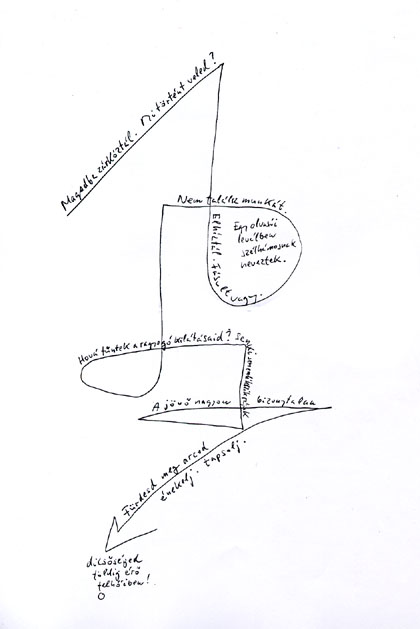 Magadba zárkóztál. Mi történt veled?
Nem találsz munkát.
Elhíztál. Fásult vagy.
Egy olvasói
levélben
szélhámosnak
neveztek.
Hová tűntek a ragyogó kilátásaid?
A jövő nagyon bizonytalan
Fürdesd meg arcod
énekelj. tapsolj.
dicsőséged
földig érő
felhőiben!